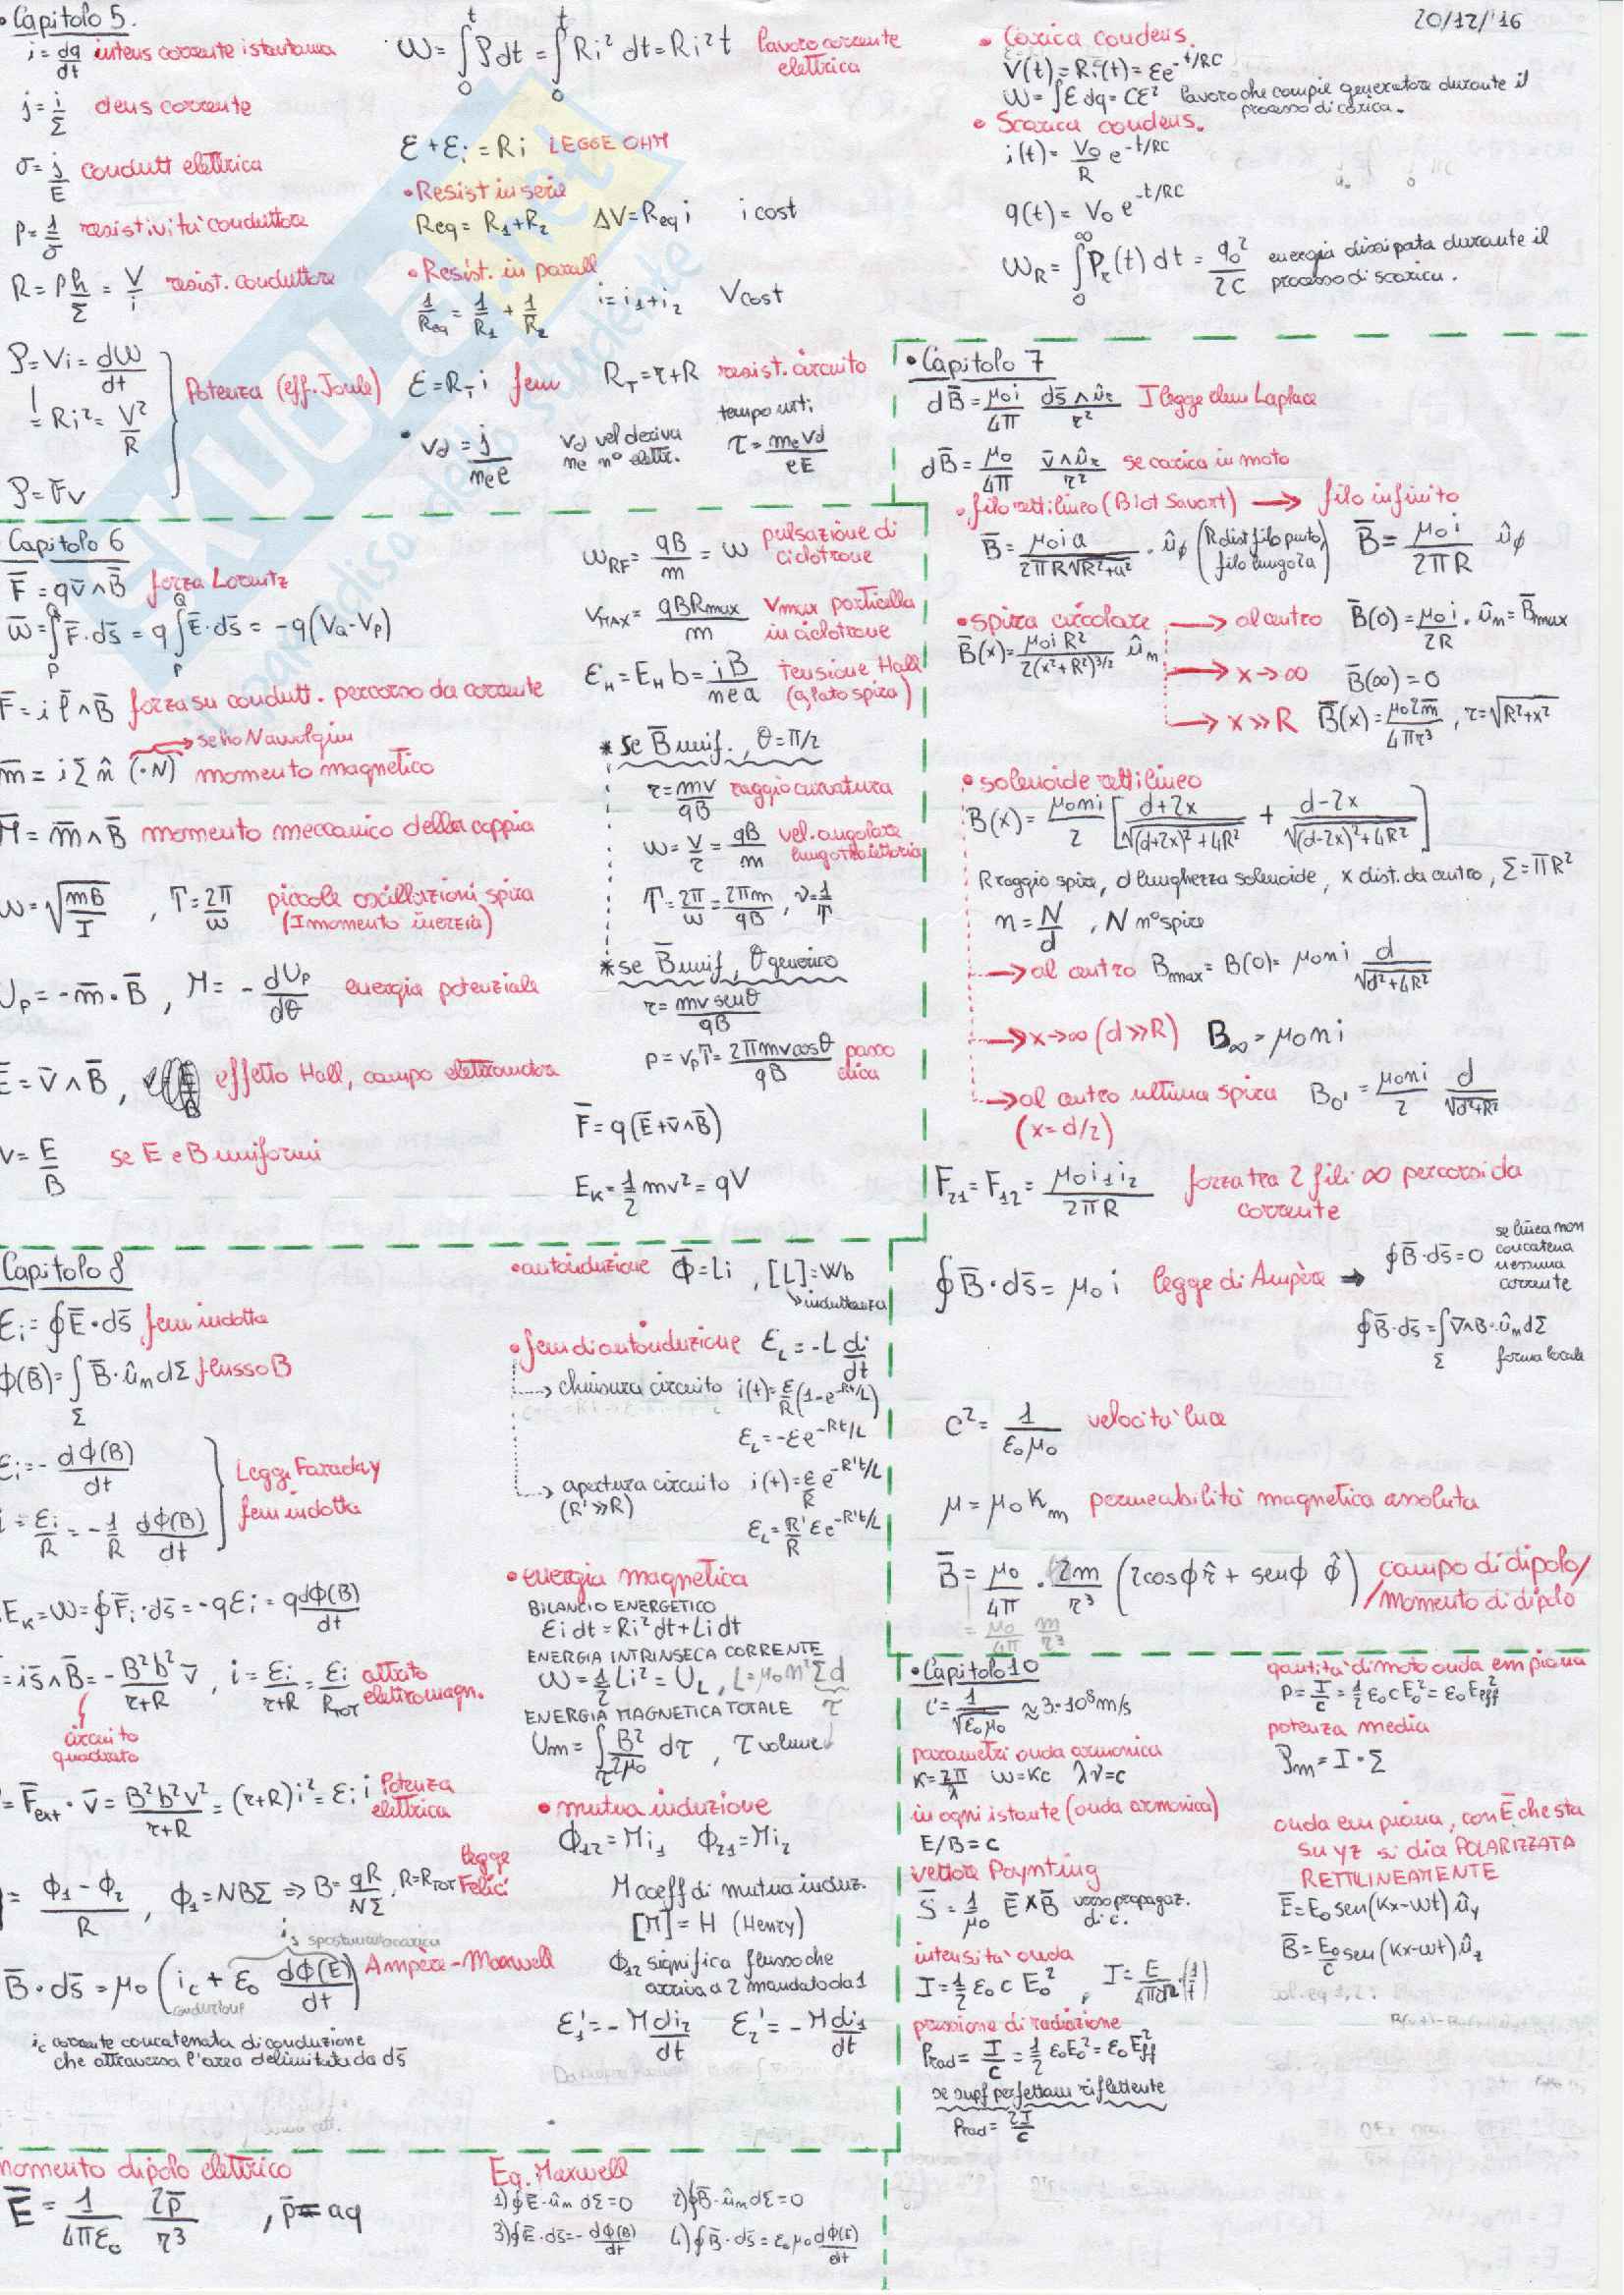 20/12/'16
• Capitolo 5.
i = dq/dt intens corrente istantanea
j = i/Σ dens corrente
σ = j/E condutt elettrica
ρ = 1/σ resistività conduttore
R = ρh/Σ = V/i resist. conduttore
P = Vi = dW/dt
= Ri² = V²/R
Potenza (eff. Joule)
P = Fv
W = ∫₀ᵗ P dt = ∫₀ᵗ Ri² dt = Ri²t lavoro corrente elettrica
ε + εᵢ = Ri LEGGE OHM
• Resist in serie
Req = R₁+R₂ ΔV = Req i i cost
• Resist. in parall
1/Req = 1/R₁ + 1/R₂ i = i₁+i₂ V cost
ε = R_T i fem R_T = r+R resist. circuito
• v_d = j/(nₑe) v_d vel deriva
nₑ n° elettr.
tempo urti
τ = mₑv_d/(eE)
• Carica condens.
V(t) = Ri(t) = εe^(-t/RC)
W = ∫ε dq = Cε² lavoro che compie generatore durante il
processo di carica.
• Scarica condens.
i(t) = V₀/R e^(-t/RC)
q(t) = V₀ e^(-t/RC)
W_R = ∫₀^∞ P_r(t) dt = q₀²/2C energia dissipata durante il
processo di scarica.
Capitolo 6
F̄ = qv̄∧B̄ forza Lorentz
W̄ = ∫_P^Q F̄·ds̄ = q∫_P^Q Ē·ds̄ = -q(V_Q-V_P)
F̄ = i l̄∧B̄ forza su condutt. percorso da corrente
se ho N avvolgim
m̄ = iΣn̂ (·N) momento magnetico
M̄ = m̄∧B̄ momento meccanico della coppia
ω = √(mB/I), T = 2π/ω piccole oscillazioni spira
(I momento inerzia)
U_P = -m̄·B̄, M = -dU_P/dθ energia potenziale
Ē = v̄∧B̄, effetto Hall, campo elettromotore
v = E/B se E e B uniformi
ω_RF = qB/m = ω pulsazione di ciclotrone
v_MAX = qBR_max/m v max particella
in ciclotrone
ε_H = E_H b = iB/(nea) tensione Hall
(a, lato spira)
* se B̄ unif., θ = π/2
r = mv/qB raggio curvatura
ω = v/r = qB/m vel. angolare
lungo traiettoria
T = 2π/ω = 2πm/qB, ν = 1/T
* se B̄ unif, θ generico
r = mv senθ/qB
p = v_P T = 2πmv cosθ/qB passo elica
F̄ = q(Ē+v̄∧B̄)
E_K = ½mv² = qV
• Capitolo 7
dB̄ = μ₀i/4π ds̄∧û_r/r² I legge elem Laplace
dB̄ = μ₀/4π v̄∧û_r/r² se carica in moto
• filo rettilineo (Biot Savart) → filo infinito
B̄ = μ₀ia/(2πR√(R²+a²)) · û_φ (R dist filo punto, filo lungo 2a) B̄ = μ₀i/2πR û_φ
• spira circolare → al centro B̄(0) = μ₀i/2R · û_n = B̄max
B̄(x) = μ₀iR²/(2(x²+R²)^(3/2)) û_n
→ x→∞ B̄(∞) = 0
→ x≫R B̄(x) = μ₀2m̄/4πr³, r = √(R²+x²)
• solenoide rettilineo
B(x) = μ₀ni/2 [(d+2x)/√((d+2x)²+4R²) + (d-2x)/√((d-2x)²+4R²)]
R raggio spire, d lunghezza solenoide, x dist. da centro, Σ = πR²
n = N/d, N n° spire
→ al centro Bmax = B(0) = μ₀ni d/√(d²+4R²)
→ x→∞ (d≫R) B_∞ = μ₀ni
→ al centro ultima spira B₀' = μ₀ni/2 d/√(d²+R²)
(x = d/2)
F₂₁ = F₁₂ = μ₀i₁i₂/2πR forza tra 2 fili ∞ percorsi da
corrente
∮B̄·ds̄ = μ₀i legge di Ampère ⇒ ∮B̄·ds̄ = 0 se linea non
concatena
nessuna
corrente
∮B̄·ds̄ = ∫_Σ ∇∧B·û_n dΣ
forma locale
c² = 1/(ε₀μ₀) velocità luce
μ = μ₀K_m permeabilità magnetica assoluta
B̄ = μ₀/4π · 2m/r³ (2cosφ r̂ + senφ φ̂) campo di dipolo/
/momento di dipolo
= μ₀/4π m/r³
Capitolo 8
εᵢ = ∮Ē·ds̄ fem indotta
φ(B̄) = ∫_Σ B̄·û_n dΣ flusso B
εᵢ = -dφ(B)/dt
i = εᵢ/R = -1/R dφ(B)/dt
Legge Faraday
fem indotta
E_K = W = ∮F̄ᵢ·ds̄ = -qεᵢ = q dφ(B)/dt
= is̄∧B̄ = -B²b²/(r+R) v̄, i = εᵢ/(r+R) = εᵢ/R_TOT attrito
elettromagn.
circuito
quadrato
= F̄ext·v̄ = B²b²v²/(r+R) = (r+R)i² = εᵢi Potenza
elettrica
= (φ₁-φ₂)/R, φ₁ = NBΣ ⇒ B = qR/NΣ, R = R_TOT legge
Felici
i_s spostamento carica
B̄·ds̄ = μ₀(i_c + ε₀ dφ(E)/dt) Ampère-Maxwell
conduzione
i_c corrente concatenata di conduzione
che attraversa l'area delimitata da ds̄
• autoinduzione φ̄ = Li, [L] = Wb
induttanza
• fem di autoinduzione ε_L = -L di/dt
→ chiusura circuito i(t) = ε/R(1-e^(-Rt/L))
ε_L = -εe^(-Rt/L)
→ apertura circuito i(t) = ε/R e^(-R't/L)
(R'≫R)
ε_L = R'/R εe^(-R't/L)
• energia magnetica
BILANCIO ENERGETICO
εi dt = Ri²dt+Li dt
ENERGIA INTRINSECA CORRENTE
W = ½Li² = U_L, L = μ₀n²Σd
τ
ENERGIA MAGNETICA TOTALE
U_m = ∫_τ B²/2μ₀ dτ, τ volume
• mutua induzione
φ₁₂ = Mi₁ φ₂₁ = Mi₂
M coeff di mutua induz.
[M] = H (Henry)
φ₁₂ significa flusso che
arriva a 2 mandato da 1
ε₁' = -M di₂/dt ε₂' = -M di₁/dt
• Capitolo 10
c = 1/√(ε₀μ₀) ≈ 3·10⁸ m/s
parametri onda armonica
K = 2π/λ ω = Kc λν = c
in ogni istante (onda armonica)
E/B = c
vettore Poynting
S̄ = 1/μ₀ Ē×B̄ verso propagaz.
di c.
intensità onda
I = ½ε₀cE₀², I = E/4πdr² (1/t)
pressione di radiazione
Prad = I/c = ½ε₀E₀² = ε₀E²eff
se supf perfettam riflettente
Prad = 2I/c
quantità di moto onda em piana
p = I/c = ½ε₀cE₀² = ε₀E²eff
potenza media
P_m = I·Σ
onda em piana, con Ē che sta
su yz si dice POLARIZZATA
RETTILINEAMENTE
Ē = E₀ sen(Kx-ωt) û_y
B̄ = E₀/c sen(Kx-ωt) û_z
momento dipolo elettrico
Ē = 1/4πε₀ 2p̄/r³, p̄ = aq
Eq. Maxwell
1) ∮Ē·û_n dΣ = 0 2) ∮B̄·û_n dΣ = 0
3) ∮Ē·ds̄ = -dφ(B)/dt 4) ∮B̄·ds̄ = ε₀μ₀ dφ(E)/dt
SKUOLA.net
il paradiso dello studente